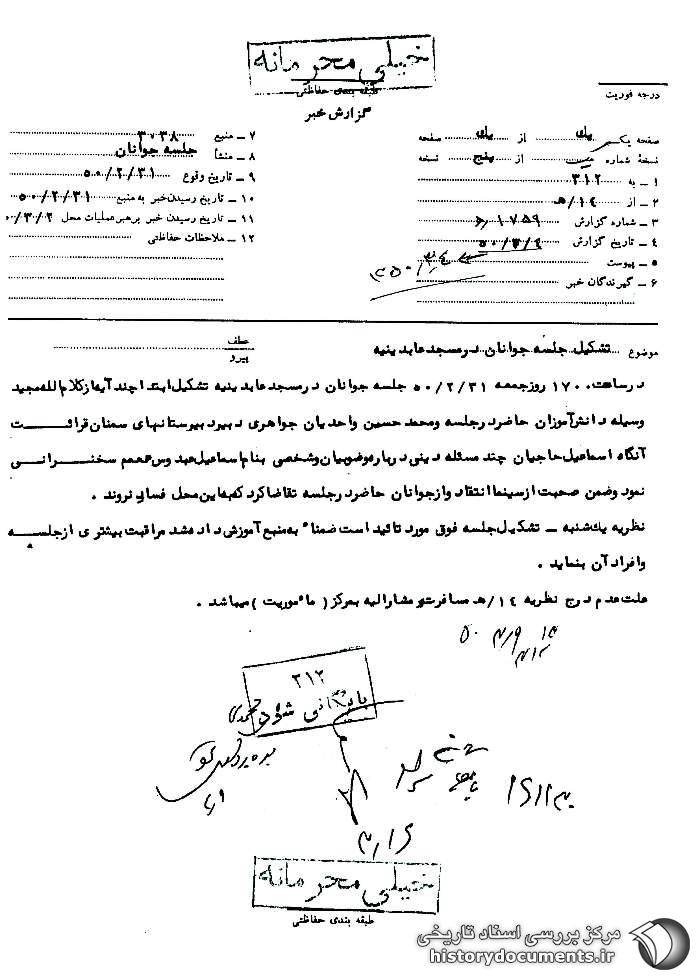 خیلی محرمانه
طبقه بندی حفاظتی
گزارش خبر
درجه فوریت
صفحه یک از یک صفحه
نسخهٔ شماره از پنج نسخه
۱ ـ به ۳۱۲
۲ ـ از ۱۴/ه‍
۳ ـ شماره گزارش
۴ ـ تاریخ گزارش
۵ ـ پیوست
۶ ـ گیرندگان خبر
۷ ـ منبع ۳۰۳۸
۸ ـ منشأ جلسه جوانان
۹ ـ تاریخ وقوع ۵۰/۲/۳۱
۱۰ ـ تاریخ رسیدن خبر به منبع ۵۰/۲/۳۱
۱۱ ـ تاریخ رسیدن خبر برهبر عملیات محل ۵۰/۳/۲
۱۲ ـ ملاحظات حفاظتی
موضوع تشکیل جلسه جوانان درمسجد عابدینیه
عطف
پیرو
درساعت ۱۷۰۰ روزجمعه ۵۰/۲/۳۱ جلسه جوانان درمسجد عابدینیه تشکیل ابتدا چند آیه از کلام الله مجید
وسیله دانش‌آموزان حاضر درجلسه ومحمد حسین واحدیان جواهری دبیر دبیرستانهای سمنان قرائت
آنگاه اسماعیل حاجیان چند مسئله دینی درباره وضو بیان وشخصی بنام اسماعیل عبدوس معمم سخنرانی
نمود وضمن صحبت از سینما انتقاد واز جوانان حاضر درجلسه تقاضا کرد که به این محل فساد نروند .
نظریه یک‌شنبه ـ تشکیل جلسه فوق مورد تائید است ضمناً به منبع آموزش داده شد مراقبت بیشتری از جلسه
وافراد آن بنماید .
علت عدم درج نظریه ۱۴/ه‍ مسافرت مشارالیه به مرکز ( مأموریت ) میباشد .
۳۱۲
بایگانی شود
خیلی محرمانه
طبقه بندی حفاظتی
مرکز بررسی اسناد تاریخی
historydocuments.ir